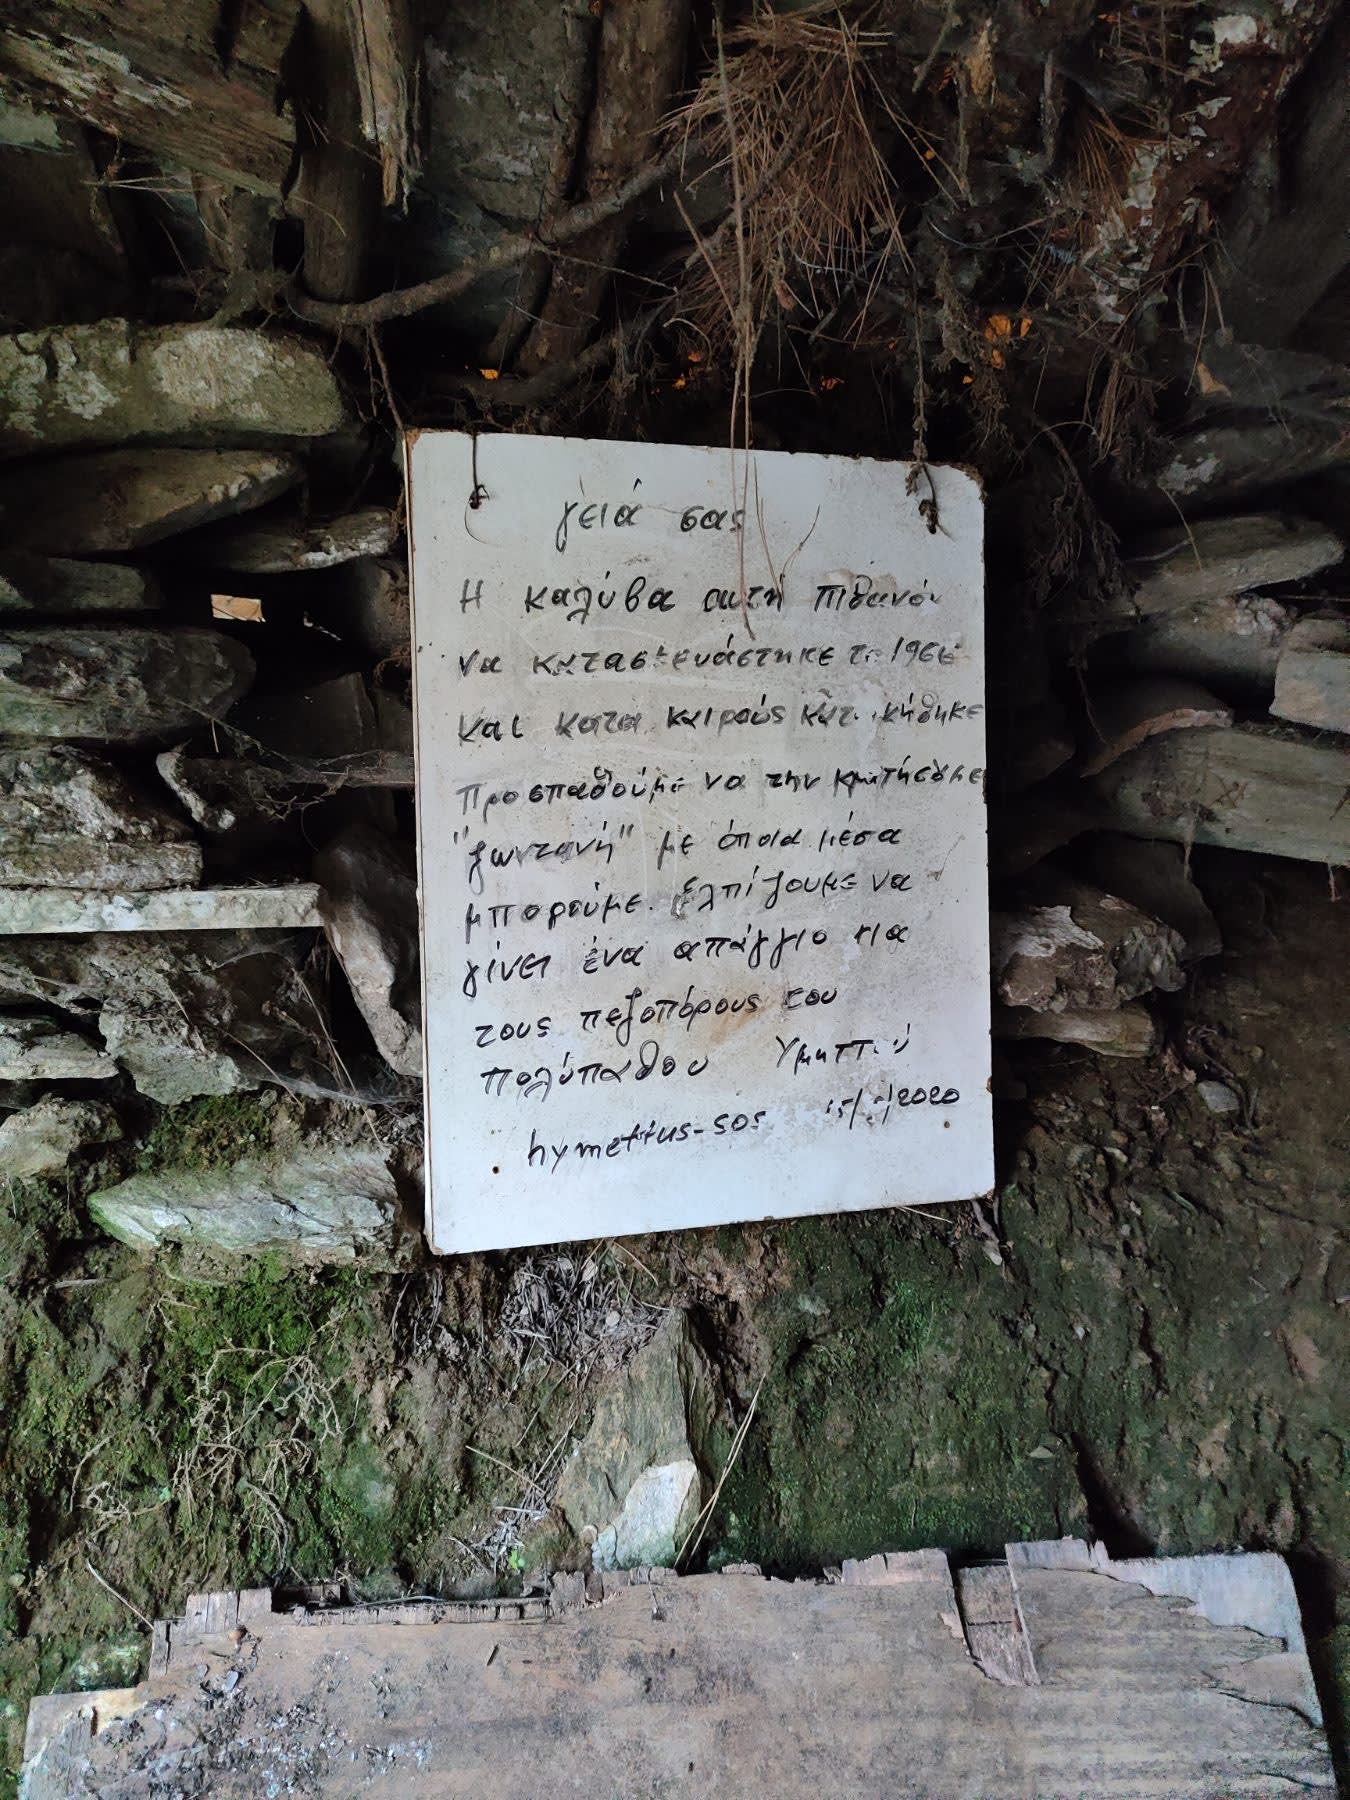 γειά σας
Η καλύβα αυτή πιθανόν
να κατασκευάστηκε το
και κατά καιρούς κατοικήθηκε
Προσπαθούμε να την κρατήσουμε
"ζωντανή" με όποια μέσα
μπορούμε. Ελπίζουμε να
γίνει ένα απάγγιο για
τους πεζοπόρους του
πολύπαθου Υμηττού
hymettus-sos